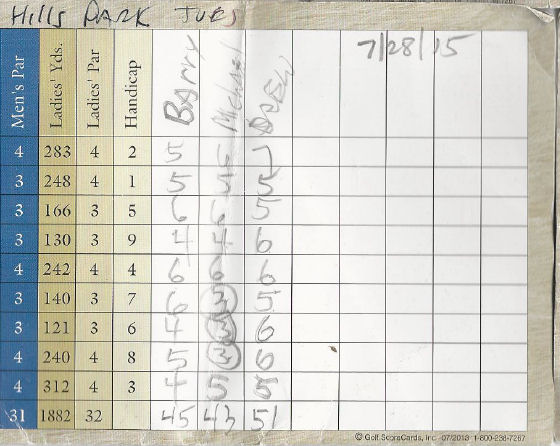 Hills PARK TUES
Men's Par Ladies' Yds. Ladies' Par Handicap Barry Michael DREW 7/28/15
4 283 4 2 5 7
3 248 4 1 5 5
3 166 3 5 6 6 5
3 130 3 9 4 4 6
4 242 4 4 6 6 6
3 140 3 7 6 3 5
3 121 3 6 4 3 6
4 240 4 8 5 3 6
4 312 4 3 4 5 5
31 1882 32 45 43 51
© Golf ScoreCards, Inc. 07/2013 1-800-238-7267